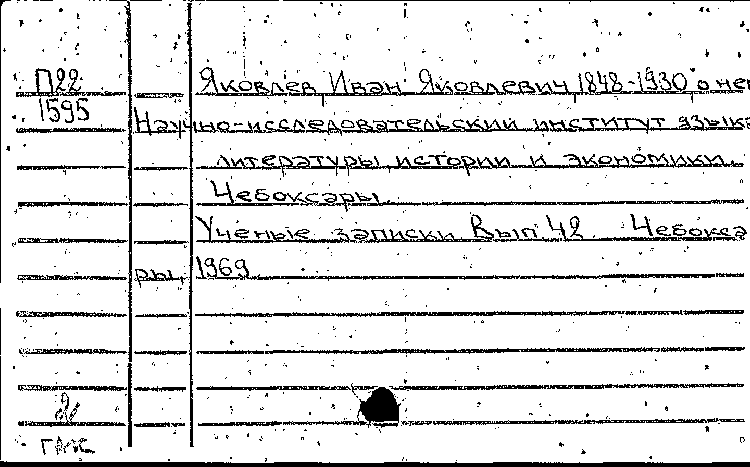 П22 Яковлев Иван Яковлевич 1848-1930 о нем
1595 Научно-исследовательский институт языка
литературы, истории и экономики.
Чебоксары.
Ученые записки. Вып. 42. Чебокса
ры, 1969.